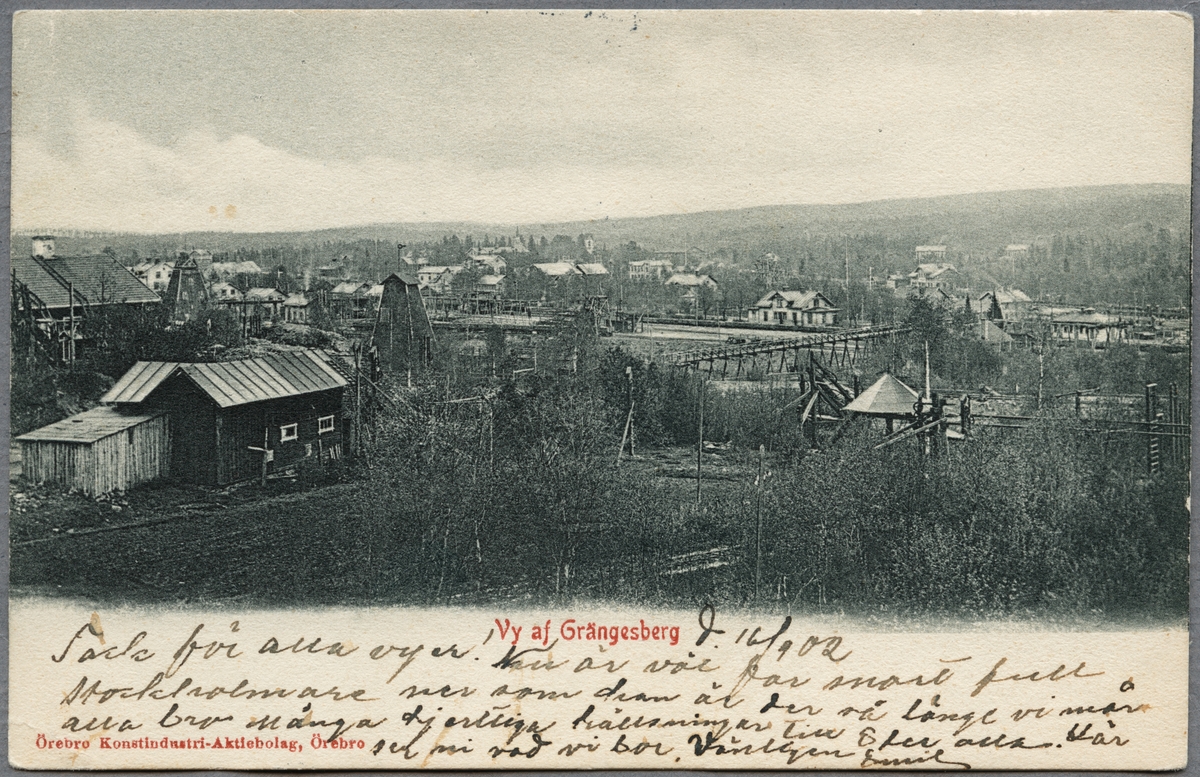 Vy af Grängesberg
d. 16/9 02
Tack för alla vyer! Nu är väl far snart full
stockholmare ner som han är der så länge vi mår
alla bra Många hjertliga hälsningar till Eder alla. Här
ser ni vad vi bor. Vänligen Emil
Örebro Konstindustri-Aktiebolag, Örebro